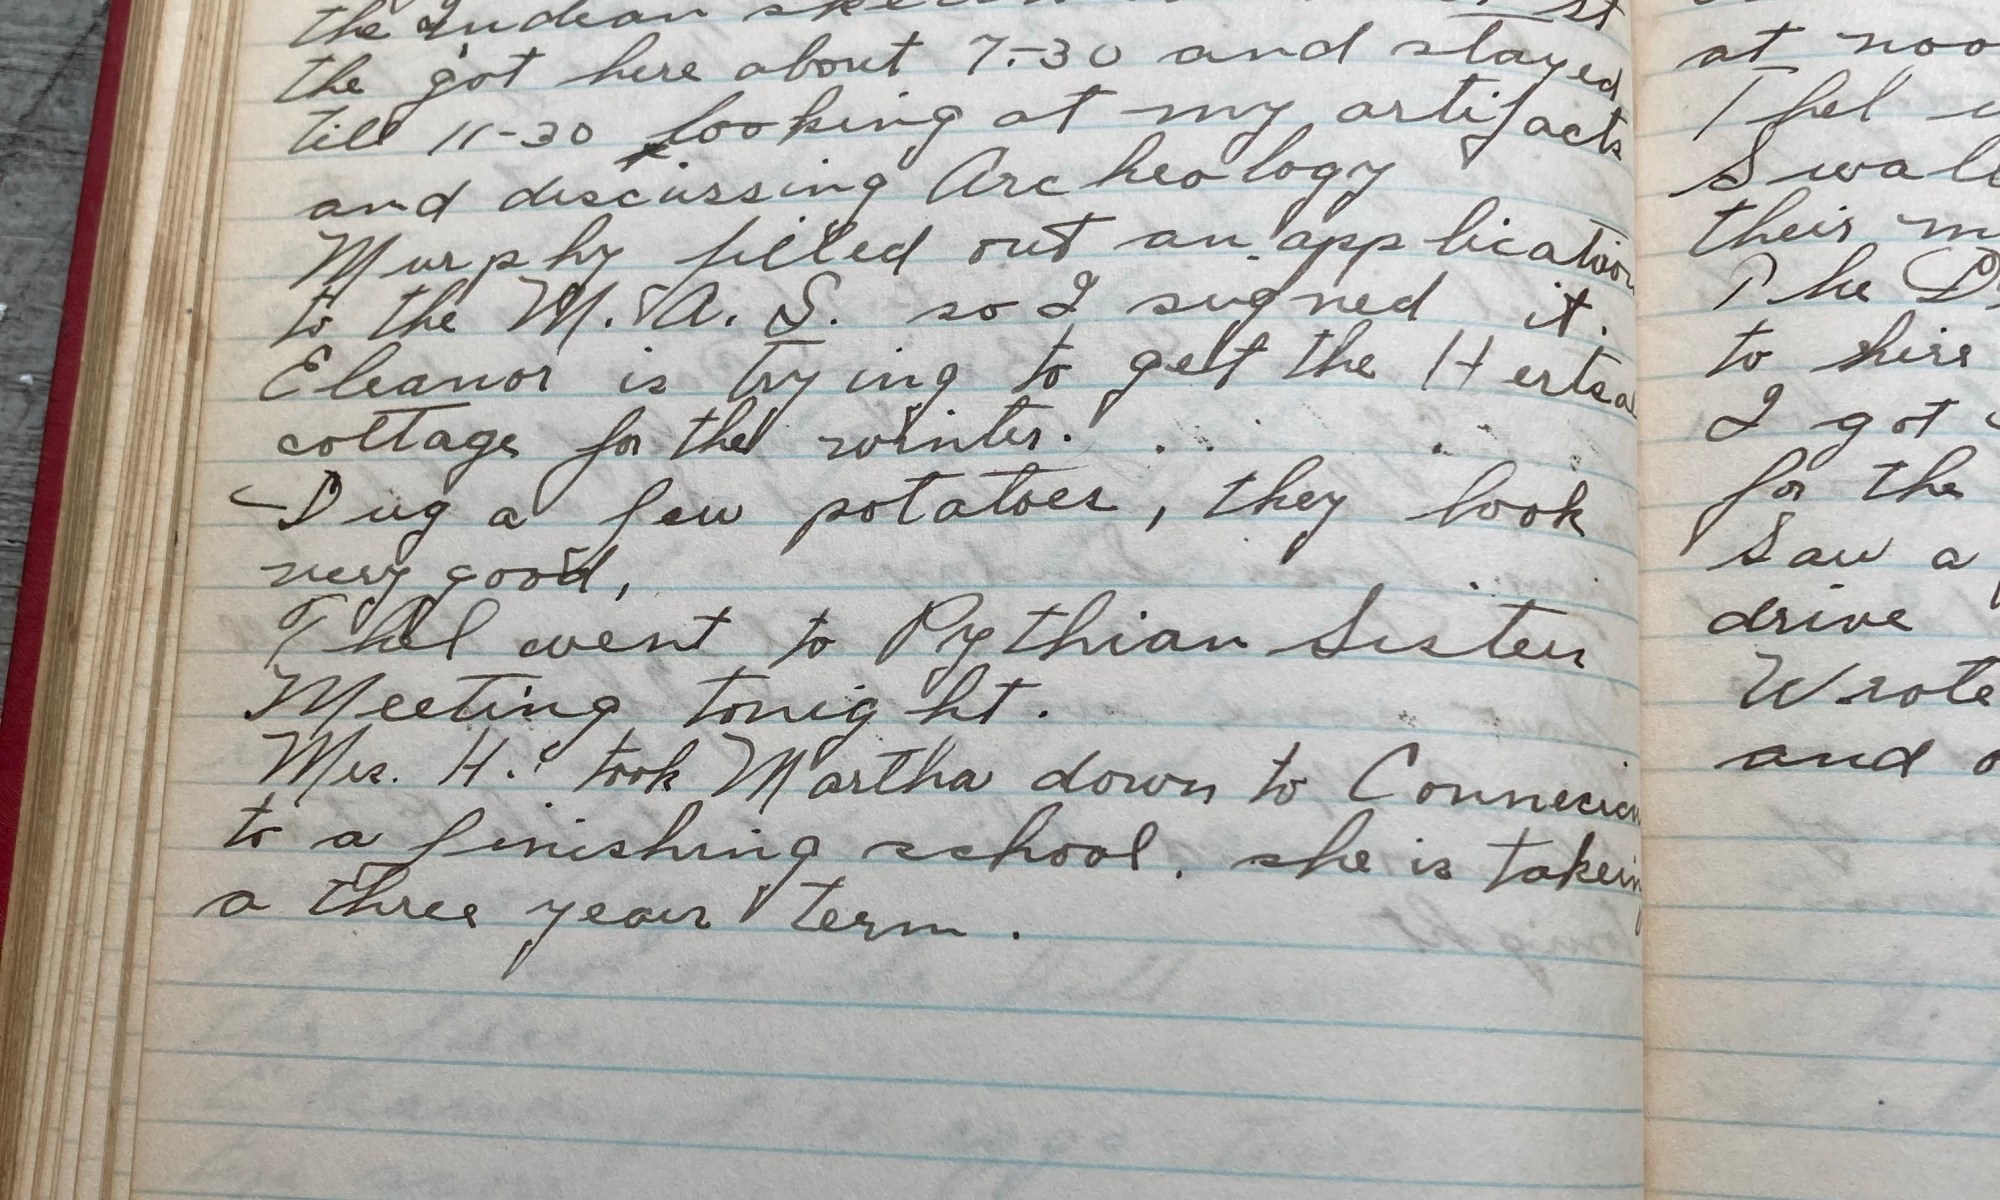 the Indean
the got here about 7-30 and stayed
till 11-30 looking at my artifacts
and discussing Archeology
Murphy filled out an application
to the M. A. S. so I signed it.
Eleanor is trying to get the
cottage for the winter.
Dug a few potatoes, they look
very good,
Thel went to Pythian Sister
Meeting tonight.
Mrs. H. took Martha down to
to a finishing school. she is takein
a three year term.
at
I
their
The
to hire
I got
for the
Saw a
drive
Wrote
and